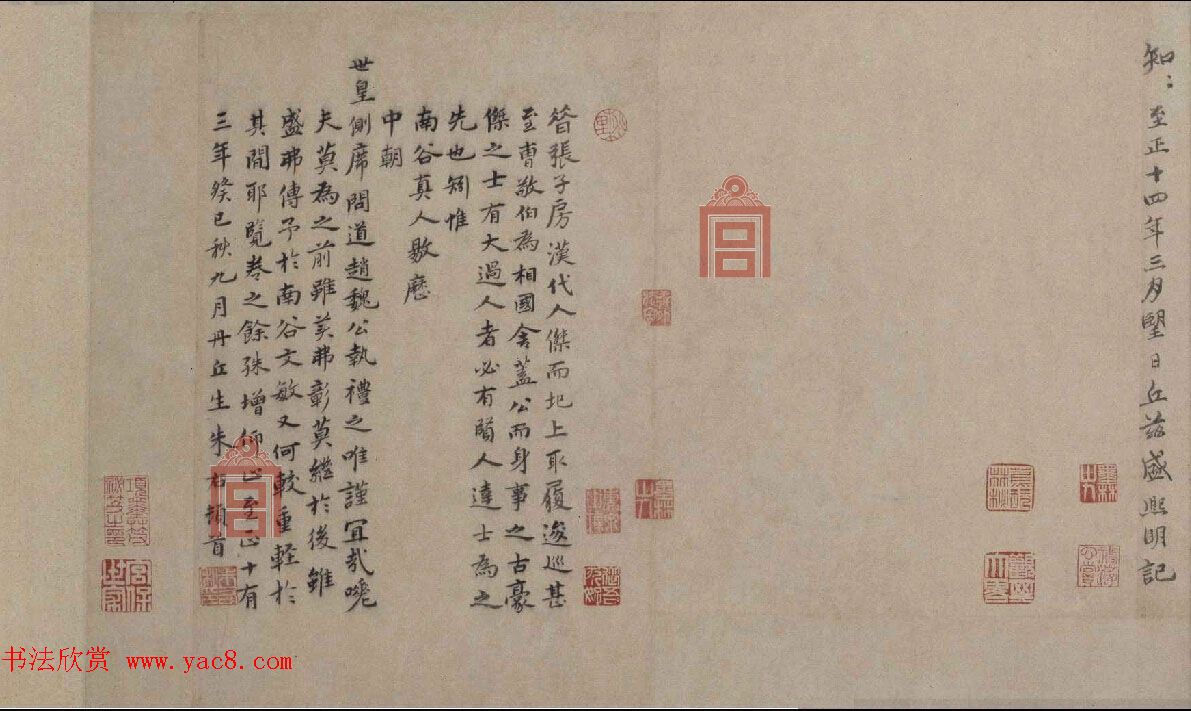 知：至正十四年三月望日丘兹盛熙明記
昝張子房漢代人傑而圯上取履逡巡甚
至曹敬伯為相國舍蓋公而身事之古豪
傑之士有大過人者必有賢人達士為之
先也矧惟
南谷真人敭歷
中朝
世皇側席問道趙魏公執禮之唯謹冝哉嘵
夫莫為之前雖美弗彰莫繼於後雖
盛弗傳予於南谷文敏又何較重軽於
其間耶覽卷之餘殊增仰止至正十有
三年癸巳秋九月丹丘生朱右頓首
宮保世家
书法欣赏 www.yac8.com